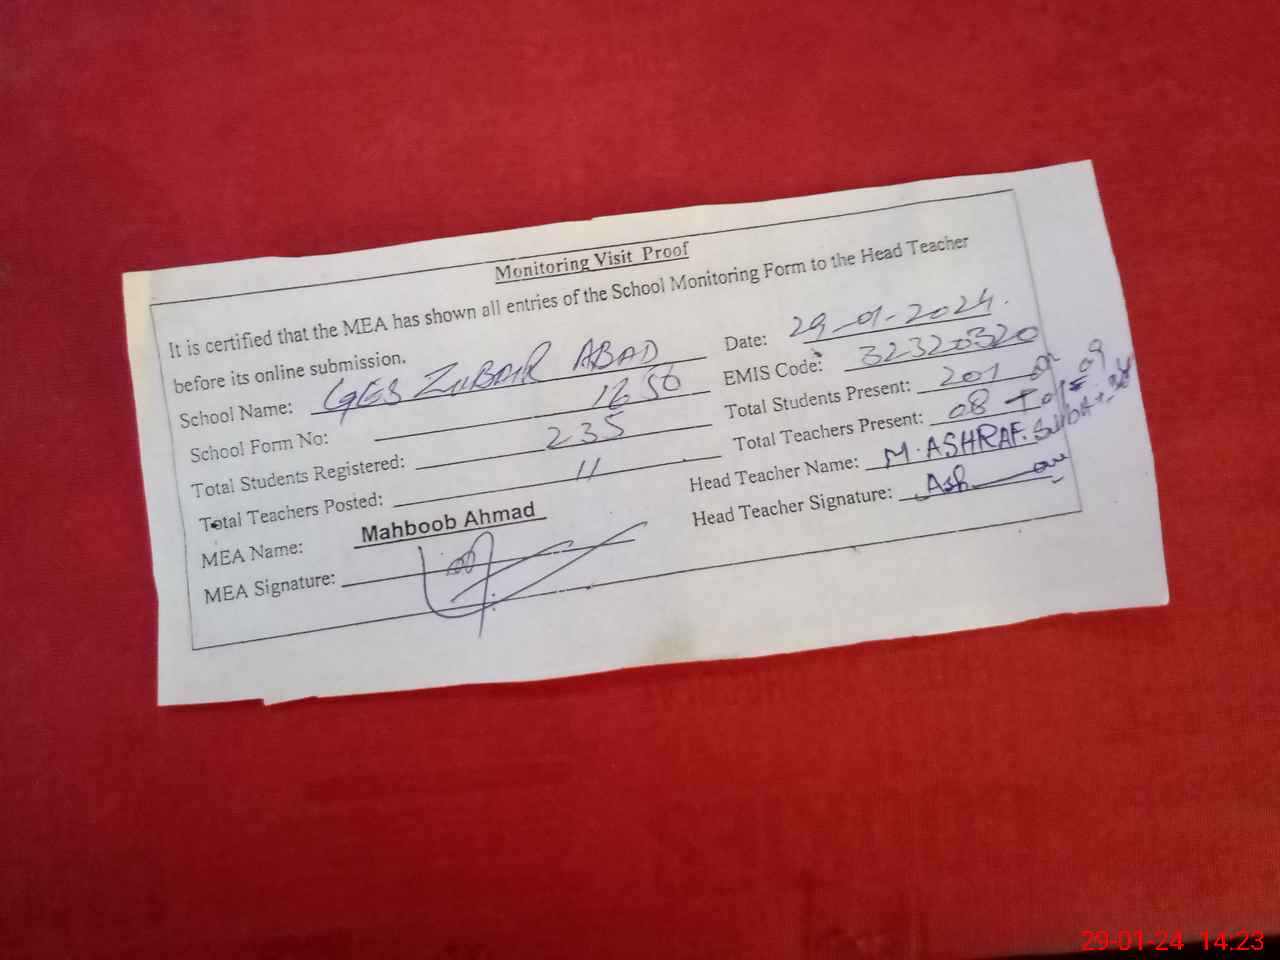 Monitoring Visit Proof
It is certified that the MEA has shown all entries of the School Monitoring Form to the Head Teacher
before its online submission.
Date: 29-01-2024.
School Name: GES ZUBAIR ABAD
EMIS Code: 32320320
School Form No: 1656
Total Students Present: 201
Total Students Registered: 235
Total Teachers Present: 08 + 01 = 09
Total Teachers Posted: 11
Head Teacher Name: M. ASHRAF.
MEA Name: Mahboob Ahmad
Head Teacher Signature:
MEA Signature:
29-01-24 14:23